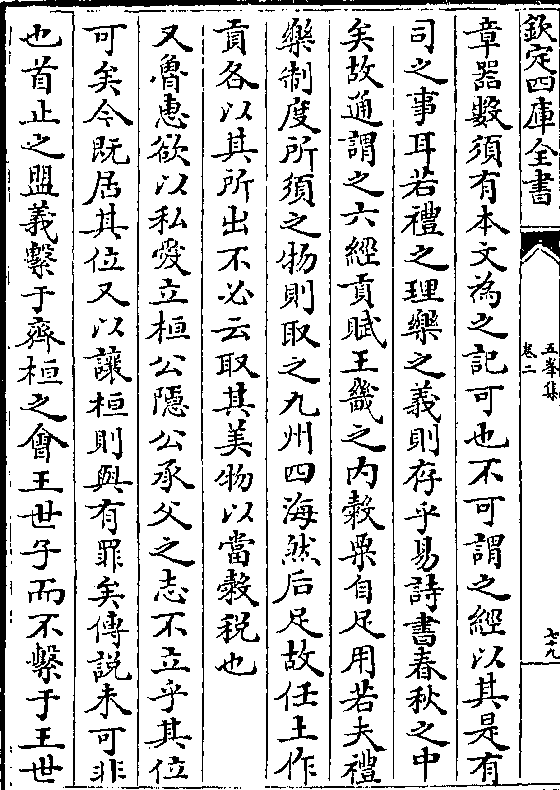 欽定四庫全書
五峯集
卷二
七九
章器數須有本文為之記可也不可謂之經以其是有
司之事耳若禮之理樂之義則存乎易詩書春秋之中
矣故通謂之六經貢賦王畿之内榖粟自足用若夫禮
樂制度所須之物則取之九州四海然后足故任土作
貢各以其所出不必云取其美物以當榖税也
又魯恵欲以私愛立桓公隱公承父之志不立乎其位
可矣今既居其位又以讓桓則與有罪矣傳説未可非
也首止之盟義繫于齊桓之會王世子而不繫于王世